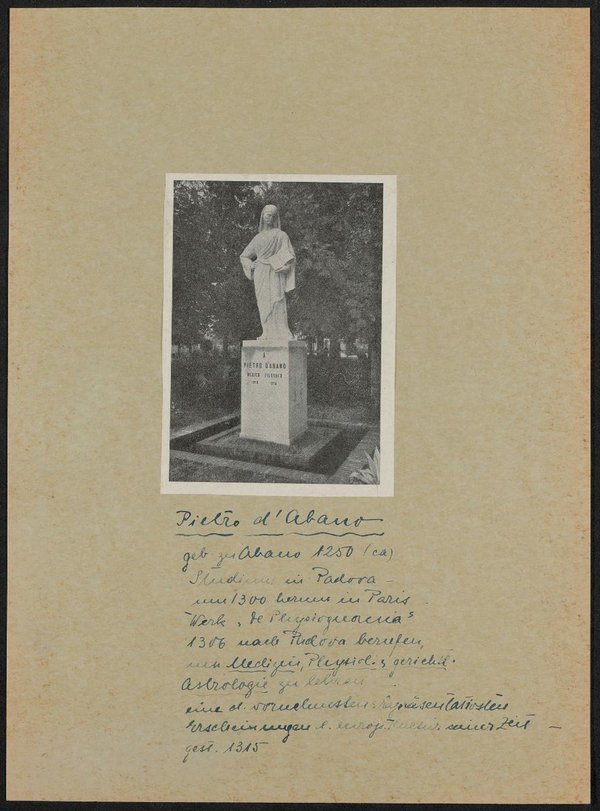 A
PIETRO D'ABANO
MEDICO FILOSOFO
Pietro d'Abano
geb zu Abano 1250 (ca)
Studium in Padova –
um 1300 herum in Paris
Werk „de Physiognomia"
1306 nach Padova berufen,
um Medizin, Physiol. &
Astrologie zu lehren
eine d. vornehmsten & repräsentativsten
Erscheinungen d. europ. seiner Zeit –
gest. 1315